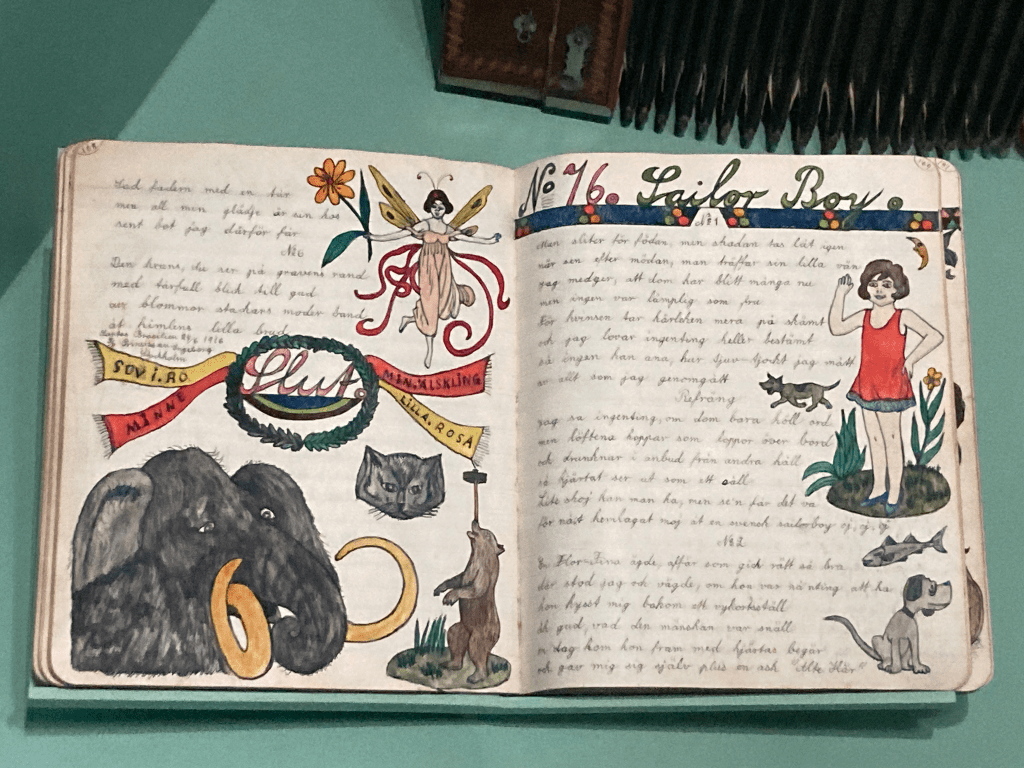 Sad fadern med en tår
men all min glädje är sin kos
sent bot jag därför får
No 6
Den krans, du ser på gravens rand
med tårfull blick till gud
av blommor stackars moder band
åt himlens lilla brud
Stockholm
SOV.I.RO
MINNE
Slut.
MIN.ÄLSKLING
LILLA.ROSA
No 76. Sailor Boy.
No 1
Man sliter för födan, men skadan tas låt igen
när sen efter mödan, man träffar sin lilla vän
jag medger, att dom har blitt många nu
men ingen var lämplig som fru
För kvinsen tar kärleken mera på skämt
och jag lovar ingenting heller bestämt
så ingen kan ana, hur tjockt jag mått
av allt som jag genomgått
Refräng
jag sa ingenting, om dom bara höll ord
men löftena hoppar som loppor över bord
och drunknar i anbud från andra håll
så hjärtat ser ut som ett såll
Lite skoj kan man ha, men se'n får det va
för näst hemlagat moj åt en svensk sailorboy oj, oj, oj
No 2
En Hor-Tina ägde, affär som gick rätt så bra
där stod jag och vägde, om hon var nånting att ha
hon kysst mig bakom ett vykortsställ
åh gud, vad den mänskan var snäll
en dag kom hon fram med hjärtas begär
och gav mig sig själv plus en ask "Alte Här"